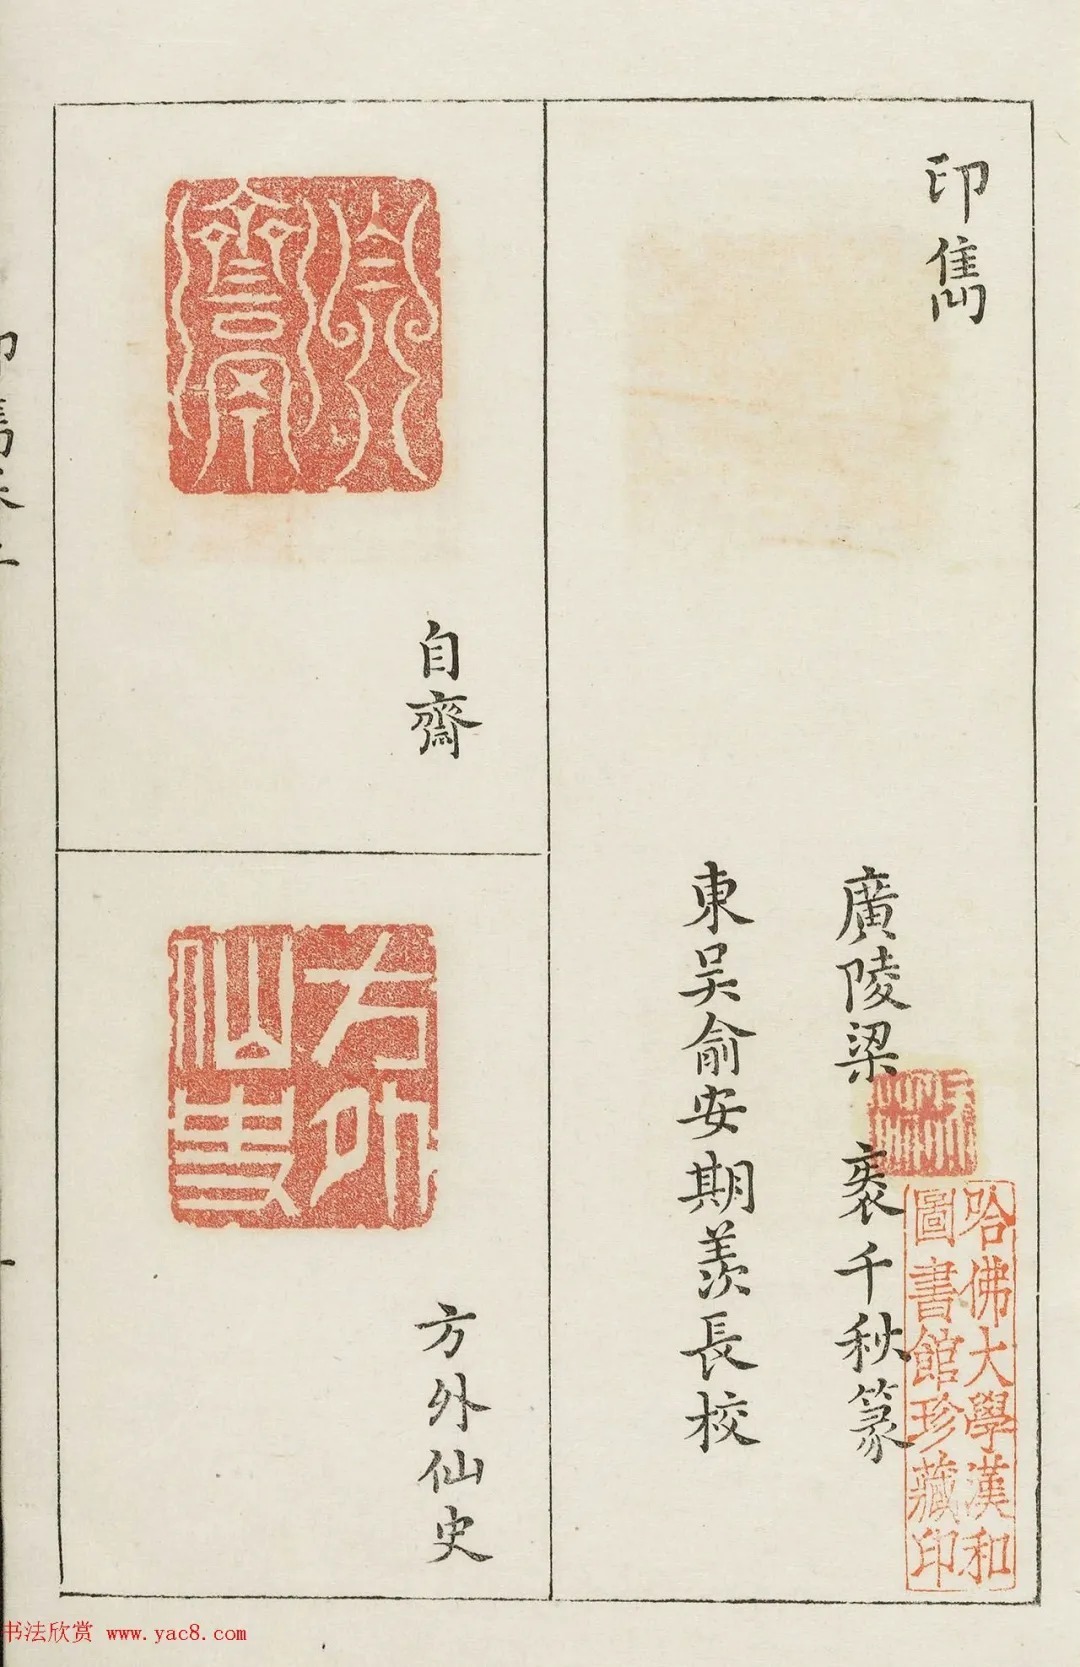 印雋
廣陵梁 袠千秋篆
東吳俞安期羨長校
哈佛大學漢和
圖書館珍藏印
自齋
方外
仙史
方外仙史
书法欣赏 www.yac8.com